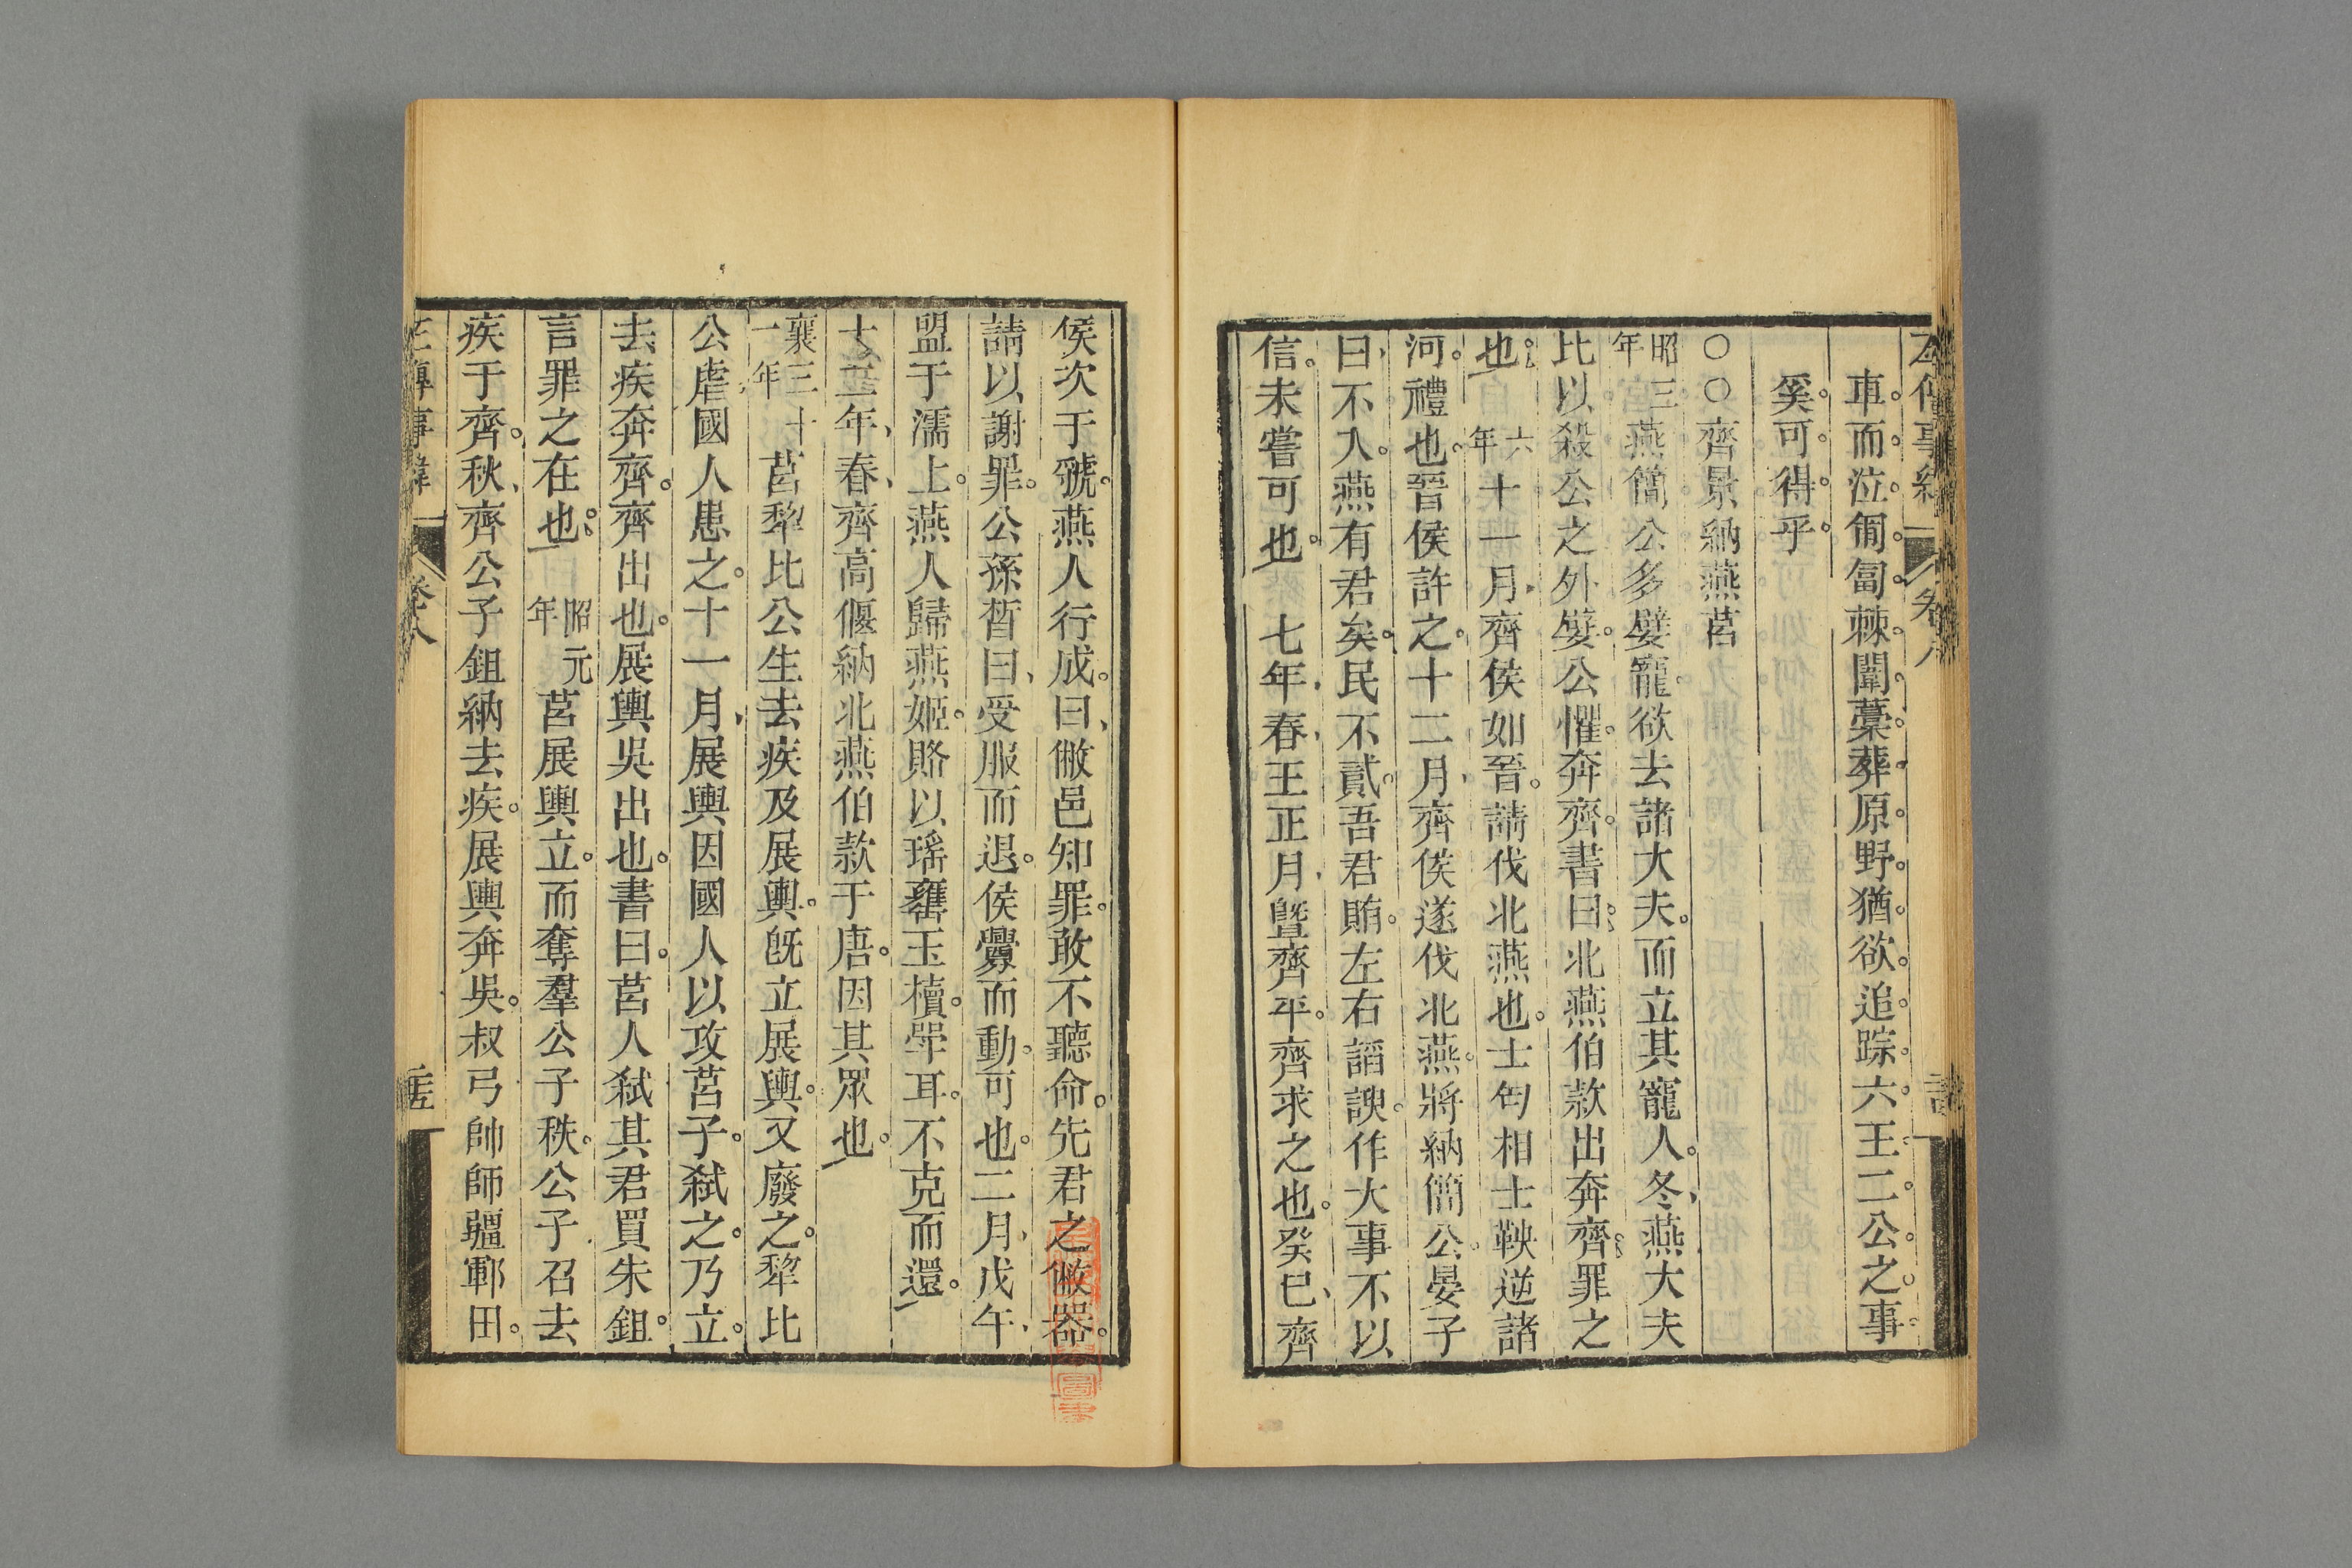 車而泣匍匐棘闈藁葬原野猶欲追踪六王二公之事
奚可得乎
○○齊景納燕莒
昭三年燕簡公多嬖寵欲去諸大夫而立其寵人冬燕大夫
比以殺公之外嬖公懼奔齊書曰北燕伯款出奔齊罪之
也六年十一月齊侯如晉請伐北燕也士匄相士鞅逆諸
河禮也晉侯許之十二月齊侯遂伐北燕將納簡公晏子
曰不入燕有君矣民不貳吾君賄左右諂諛作大事不以
信未嘗可也七年春王正月暨齊平齊求之也癸巳齊
侯次于虢燕人行成曰敝邑知罪敢不聽命先君之敝器
請以謝罪公孫晳曰受服而退俟釁而動可也二月戊午
盟于濡上燕人歸燕姬賂以瑤罋玉櫝斝耳不克而還
十二年春齊高偃納北燕伯款于唐因其眾也
襄三十一年莒犂比公生去疾及展輿旣立展輿又廢之犂比
公虐國人患之十一月展輿因國人以攻莒子弒之乃立
去疾奔齊齊出也展輿吳出也書曰莒人弒其君買朱鉏
言罪之在也昭元年莒展輿立而奪羣公子秩公子召去
疾于齊秋齊公子鉏納去疾展輿奔吳叔弓帥師疆鄆田
左傳事緯
卷八